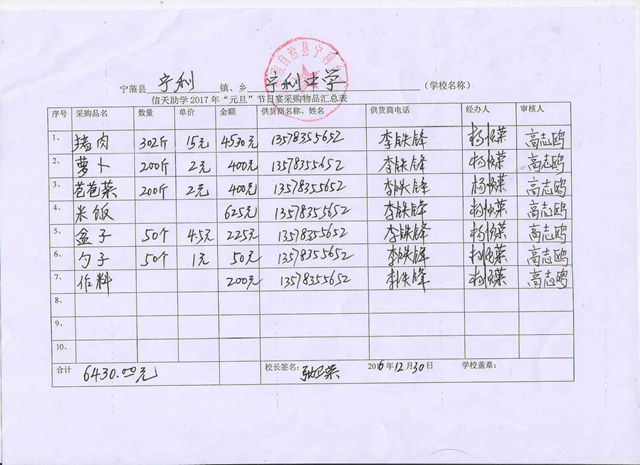 自治县宁利
宁蒗县 宁利 镇、乡 宁利中学 (学校名称)
信天助学 2017 年"元旦"节日宴采购物品汇总表
序号 采购品名 数量 单价 金额 供货商名称、姓名 供货商电话 经办人 审核人
1、 猪肉 302斤 15元 4530元 13578355652 李铁锋 杨怀荣 高志鸥
2、 萝卜 200斤 2元 400元 13578355652 李铁锋 杨怀荣 高志鸥
3、 芭芭菜 200斤 2元 400元 13578355652 李铁锋 杨怀荣 高志鸥
4、 米饭 625元 13578355652 李铁锋 杨怀荣 高志鸥
5、 盒子 50个 4.5元 225元 13578355652 李铁锋 杨怀荣 高志鸥
6、 勺子 50个 1元 50元 13578355652 李铁锋 杨怀荣 高志鸥
7、 作料 200元 13578355652 李铁锋 杨怀荣 高志鸥
8、
9、
10、
合计 6430.00元 校长签名: 2016年12月30日 学校盖章: